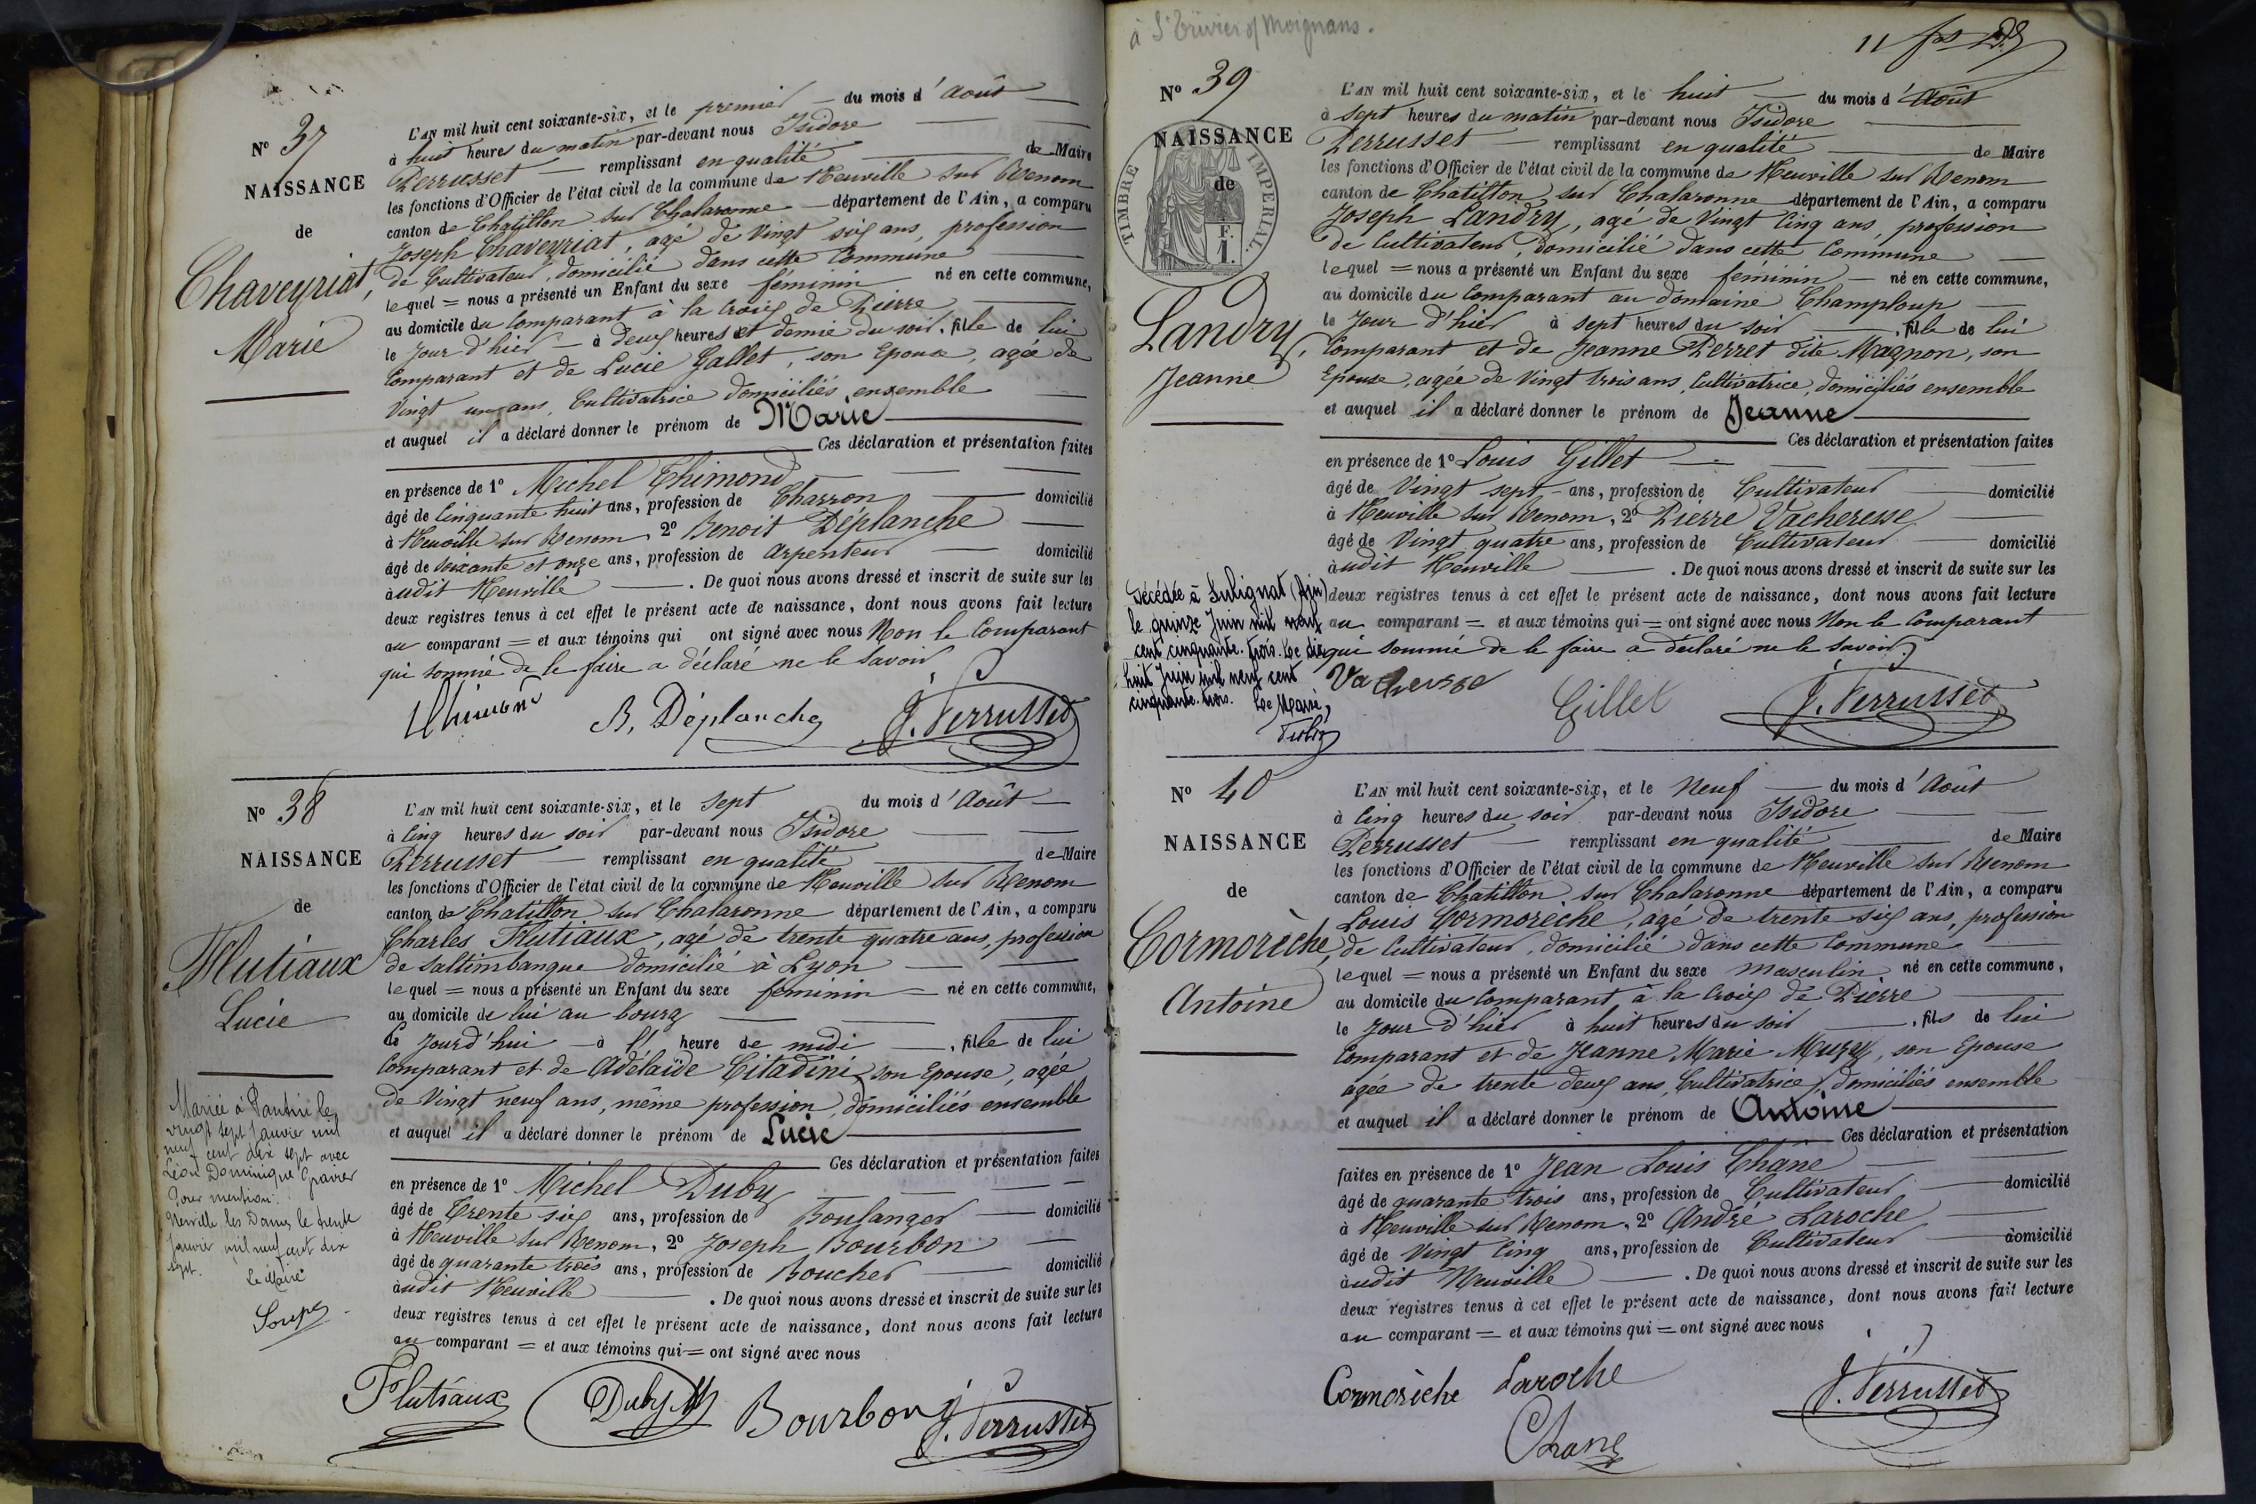 N° 37
NAISSANCE
de
Chaveyriat,
Marie
L'AN mil huit cent soixante-six, et le premier du mois d'Août
à huit heures du matin par-devant nous Isidore
Perrusset remplissant en qualité de Maire
les fonctions d'Officier de l'état civil de la commune de Neuville sur Renom
canton de Chatillon sur Chalaronne département de l'Ain, a comparu
Joseph Chaveyriat, agé de Vingt six ans, profession
de Cultivateur, domicilié dans cette Commune
lequel = nous a présenté un Enfant du sexe féminin né en cette commune,
au domicile du Comparant à la Croix de Pierre
le Jour d'hier à deux heures et demie du soir, fille de lui
Comparant et de Lucie Gallet, son Epouse, agée de
Vingt un ans, Cultivatrice domiciliés ensemble
et auquel il a déclaré donner le prénom de Marie
Ces déclaration et présentation faites
en présence de 1° Michel Thimond
âgé de Cinquante huit ans, profession de Charron domicilié
à Neuville sur Renom, 2° Benoit Déplanche
âgé de Soixante et onze ans, profession de Arpenteur domicilié
àudit Neuville . De quoi nous avons dressé et inscrit de suite sur les
deux registres tenus à cet effet le présent acte de naissance, dont nous avons fait lecture
au comparant = et aux témoins qui ont signé avec nous Non le Comparant
qui sommé de le faire a déclaré ne le Savoir
Thimond B. Déplanche J. Perrusset
N° 38
NAISSANCE
de
Flutiaux
Lucie
L'AN mil huit cent soixante-six, et le sept du mois d'Août
à Cinq heures du soir par-devant nous Isidore
Perrusset remplissant en qualité de Maire
les fonctions d'Officier de l'état civil de la commune de Neuville sur Renom
canton de Chatillon sur Chalaronne département de l'Ain, a comparu
Charles Flutiaux, agé de trente quatre ans, profession
de Saltimbanque domicilié à Lyon
lequel = nous a présenté un Enfant du sexe féminin né en cette commune,
au domicile de lui au bourg
Ce Jourd'hui à l' heure de midi , fille de lui
Comparant et de Adélaïde Citadini, son Epouse, agée
de Vingt neuf ans, même profession, domiciliés ensemble
et auquel il a déclaré donner le prénom de Lucie
Ces déclaration et présentation faites
en présence de 1° Michel Duby
âgé de Trente six ans, profession de Boulanger domicilié
à Neuville sur Renom, 2° Joseph Bourbon
âgé de quarante trois ans, profession de Boucher domicilié
àudit Neuville . De quoi nous avons dressé et inscrit de suite sur les
deux registres tenus à cet effet le présent acte de naissance, dont nous avons fait lecture
au comparant = et aux témoins qui = ont signé avec nous
Mariée à Pantin le
vingt sept Janvier mil
neuf cent dix sept avec
Léon Dominique
Pour mention.
Neuville les Dames le trente
Janvier mil neuf cent dix
sept.
Le Maire
Flutiaux Duby M Bourbon J. Perrusset
à St Trivier s/ Moignans.
11
N° 39
NAISSANCE
de
TIMBRE IMPERIAL
F.
1.
Landry,
Jeanne
L'AN mil huit cent soixante-six, et le huit du mois d'Août
à sept heures du matin par-devant nous Isidore
Perrusset remplissant en qualité de Maire
les fonctions d'Officier de l'état civil de la commune de Neuville sur Renom
canton de Chatillon sur Chalaronne département de l'Ain, a comparu
Joseph Landry, agé de Vingt Cinq ans, profession
de Cultivateur, domicilié dans cette Commune
lequel = nous a présenté un Enfant du sexe féminin né en cette commune,
au domicile du Comparant au domaine Champloup
le Jour d'hier à sept heures du soir , fille de lui
Comparant et de Jeanne Perret dite Magnon, son
Epouse, agée de Vingt trois ans, Cultivatrice, domiciliés ensemble
et auquel il a déclaré donner le prénom de Jeanne
Ces déclaration et présentation faites
en présence de 1° Louis Gillet
âgé de Vingt sept ans, profession de Cultivateur domicilié
à Neuville sur Renom, 2° Pierre Vacheresse
âgé de Vingt quatre ans, profession de Cultivateur domicilié
àudit Neuville . De quoi nous avons dressé et inscrit de suite sur les
deux registres tenus à cet effet le présent acte de naissance, dont nous avons fait lecture
au comparant = et aux témoins qui = ont signé avec nous Non le Comparant
qui sommé de le faire a déclaré ne le Savoir
Décédée à Sulignat (Ain)
le quinze Juin mil neuf
cent cinquante-trois. Le dix
huit Juin mil neuf cent
cinquante-trois. Le Maire,
Vacheresse Gillet J. Perrusset
N° 40
NAISSANCE
de
Cormorèche,
Antoine
L'AN mil huit cent soixante-six, et le Neuf du mois d'Août
à Cinq heures du soir par-devant nous Isidore
Perrusset remplissant en qualité de Maire
les fonctions d'Officier de l'état civil de la commune de Neuville sur Renom
canton de Chatillon sur Chalaronne département de l'Ain, a comparu
Louis Cormorèche, agé de trente six ans, profession
de Cultivateur, domicilié dans cette Commune
lequel = nous a présenté un Enfant du sexe masculin né en cette commune,
au domicile du Comparant à la Croix de Pierre
le Jour d'hier à huit heures du soir , fils de lui
Comparant et de Jeanne Marie Muzy, son Epouse
agée de trente deux ans, Cultivatrice, domiciliés ensemble
et auquel il a déclaré donner le prénom de Antoine
Ces déclaration et présentation
faites en présence de 1° Jean Louis Chane
âgé de quarante trois ans, profession de Cultivateur domicilié
à Neuville sur Renom, 2° André Laroche
âgé de Vingt Cinq ans, profession de Cultivateur domicilié
àudit Neuville . De quoi nous avons dressé et inscrit de suite sur les
deux registres tenus à cet effet le présent acte de naissance, dont nous avons fait lecture
au comparant = et aux témoins qui = ont signé avec nous
Cormorèche Laroche J. Perrusset
Chane